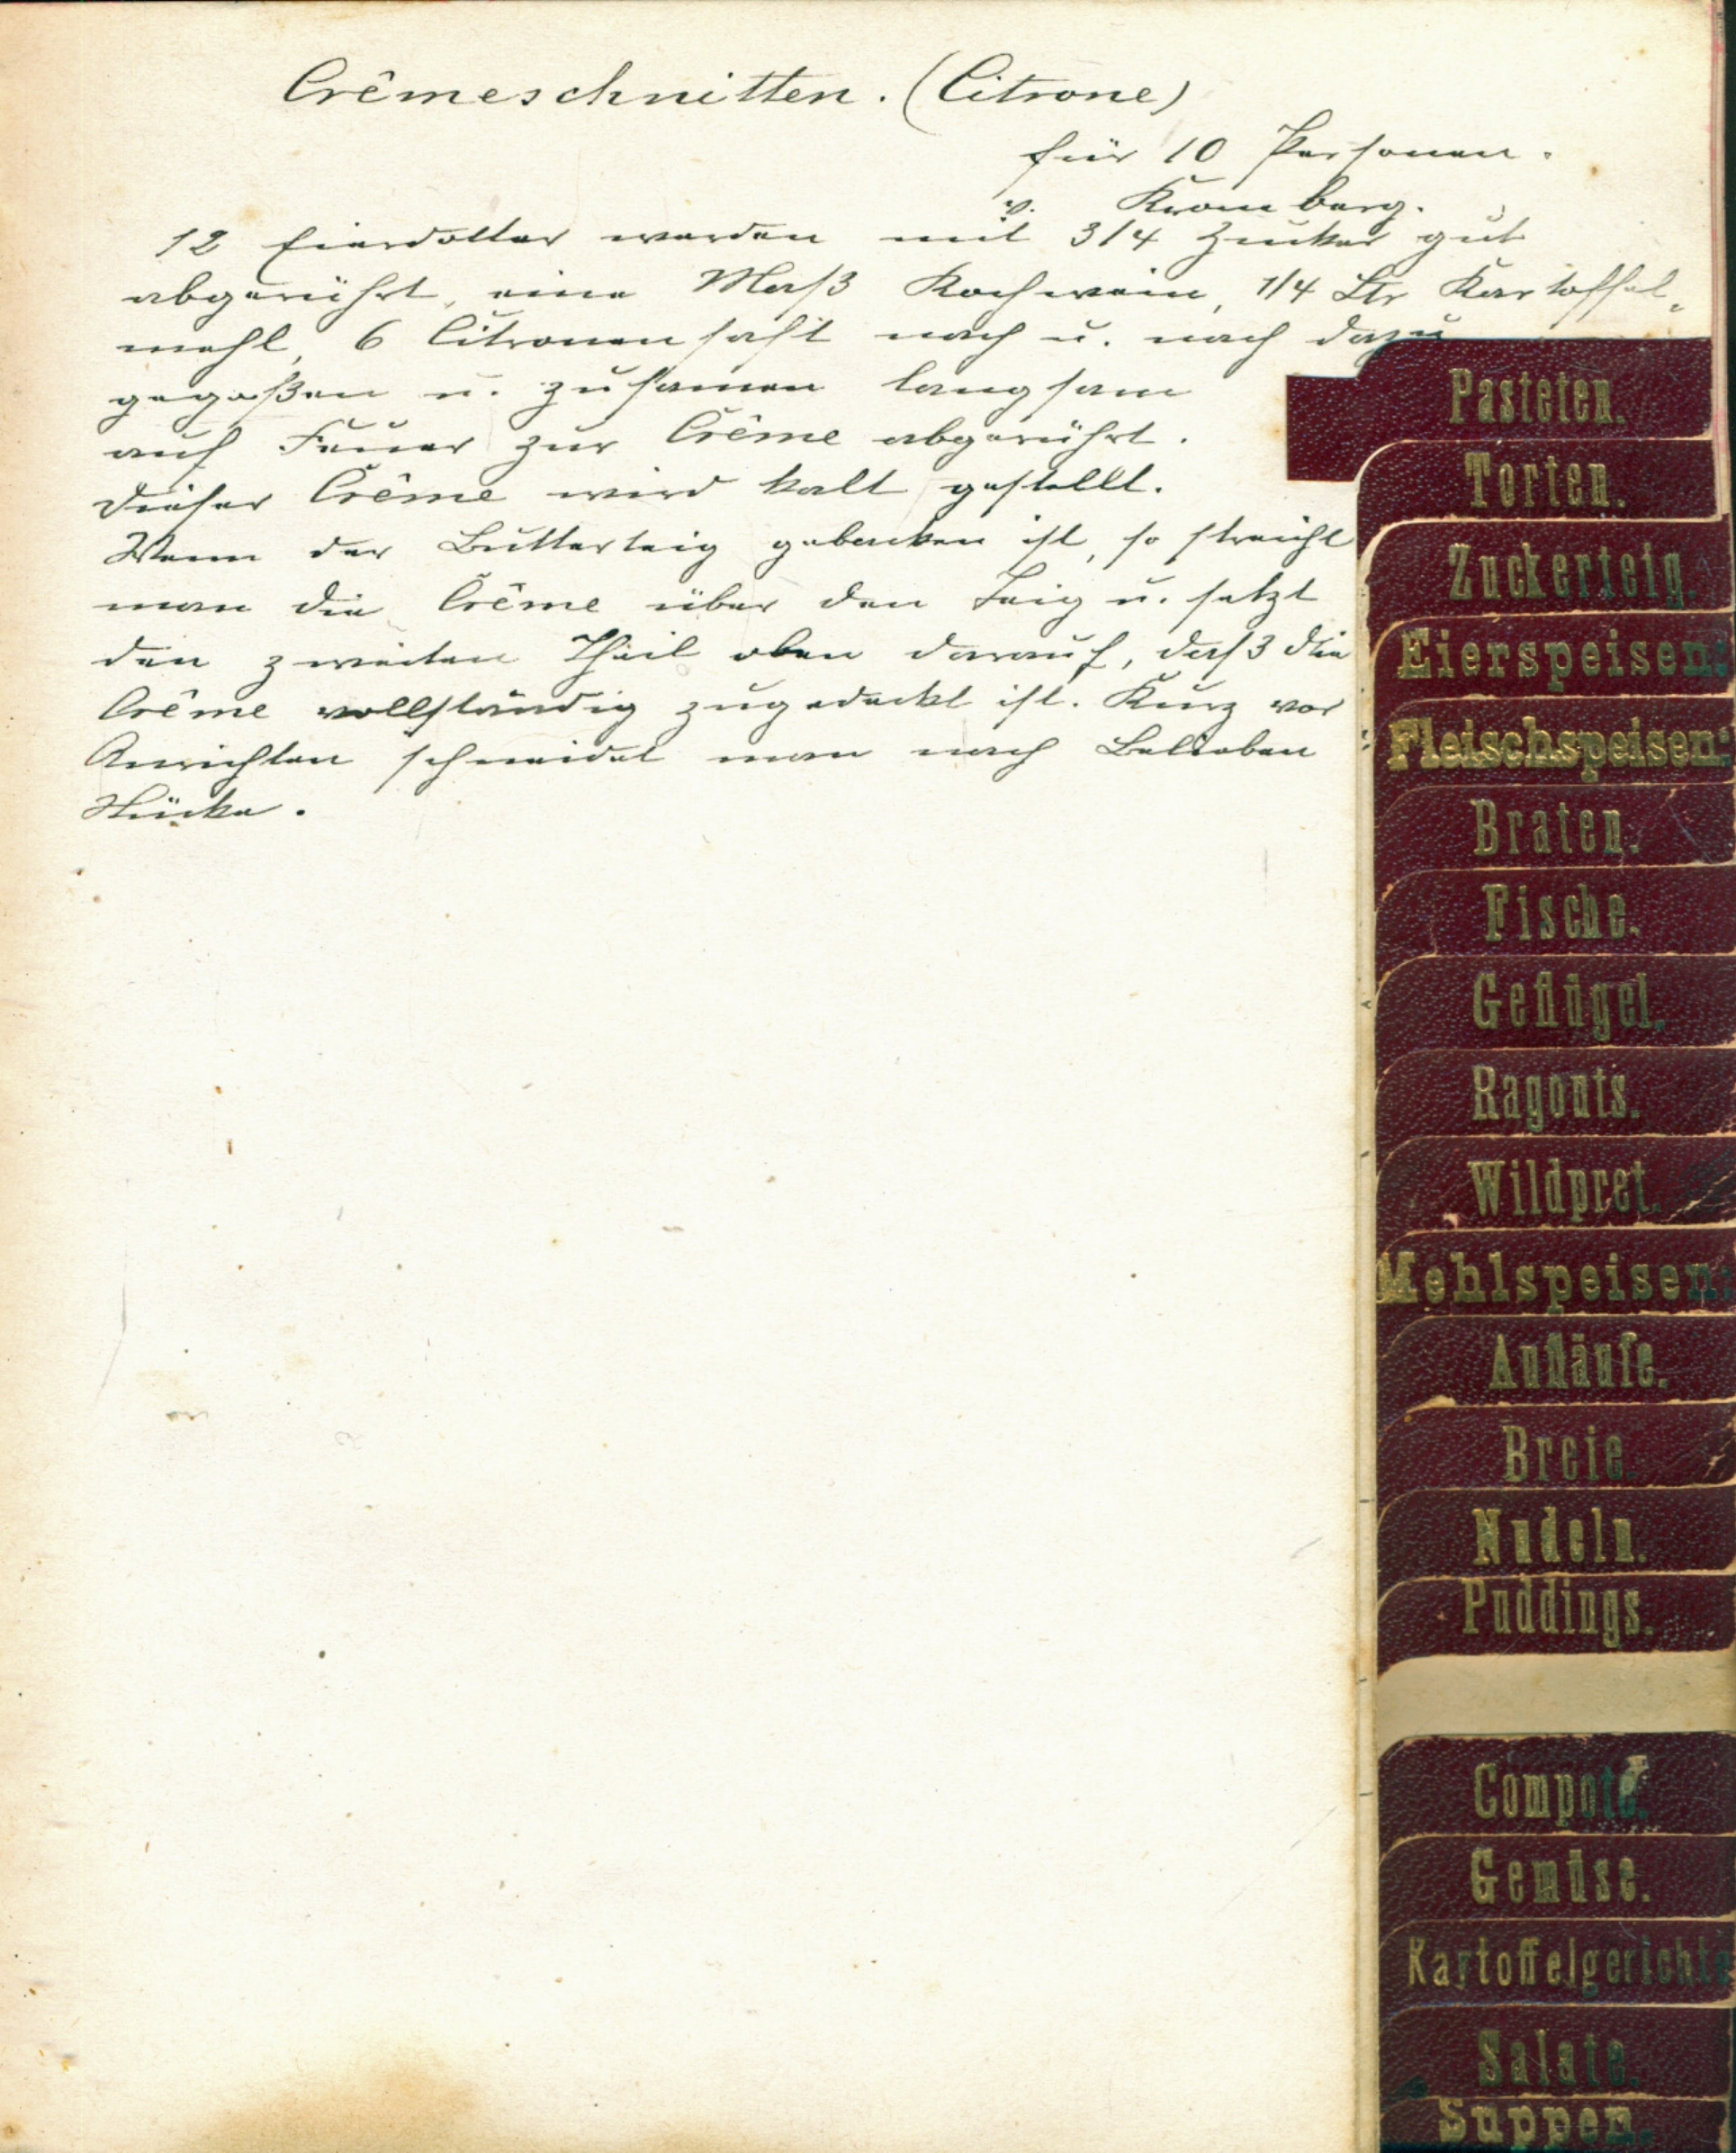 Crêmeschnitten. (Citrone)
für 10 Personen.
v. Kromberg.
12 Eierdotter werden mit 3/4 Zucker gut
abgerührt, eine Maß Kochwein, 1/4 Ltr Kartoffel-
mehl, 6 Citronensaft nach u. nach dazu
gegoßen u. zusamen langsam
auf Feuer zur Crême abgerührt.
Dieser Crême wird kalt gestellt.
Wenn der Butterteig gebacken ist, so streicht
man die Crême über den Teig u. setzt
den zweiten Theil oben darauf, daß die
Crême vollständig zugedeckt ist. Kurz vor
Anrichten schneidet man nach Belieben
Stücke.
Pasteten.
Torten.
Zuckerteig.
Eierspeisen.
Fleischspeisen.
Braten.
Fische.
Geflügel.
Ragouts.
Wildpret.
Mehlspeisen.
Aufläufe.
Breie.
Nudeln.
Puddings.
Compote.
Gemüse.
Kartoffelgerichte
Salate.
Suppen.